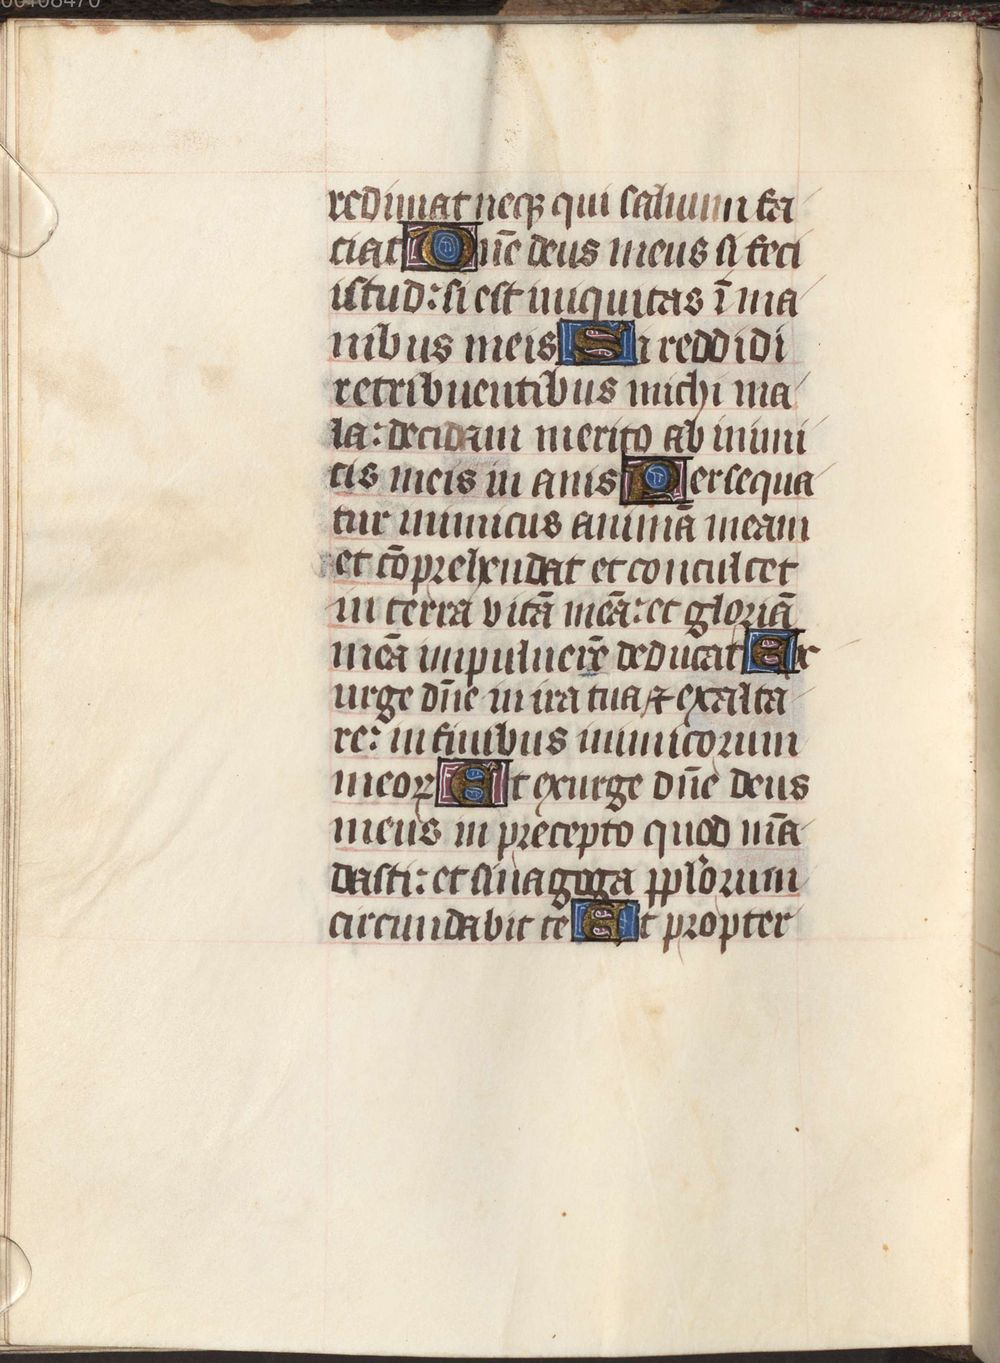 redimat neqꝫ qui saluum fa
ciat Dn̄e deus meus si feci
istud: si est iniquitas ī ma
nibus meis Si reddidi
retribuentibus michi ma
la: decidam merito ab inimi
cis meis inanis Persequa
tur inimicus animā meam
et cōprehendat et conculcet
in terra vitā meā: et gloriā
meā in puluerē deducat Ex
urge dn̄e in ira tua ⁊ exalta
re: in finibus inimicorum
meoꝝ Et exurge dn̄e deus
meus in precepto quod mā
dasti: et sinagoga pp̄lorum
circundabit te Et propter